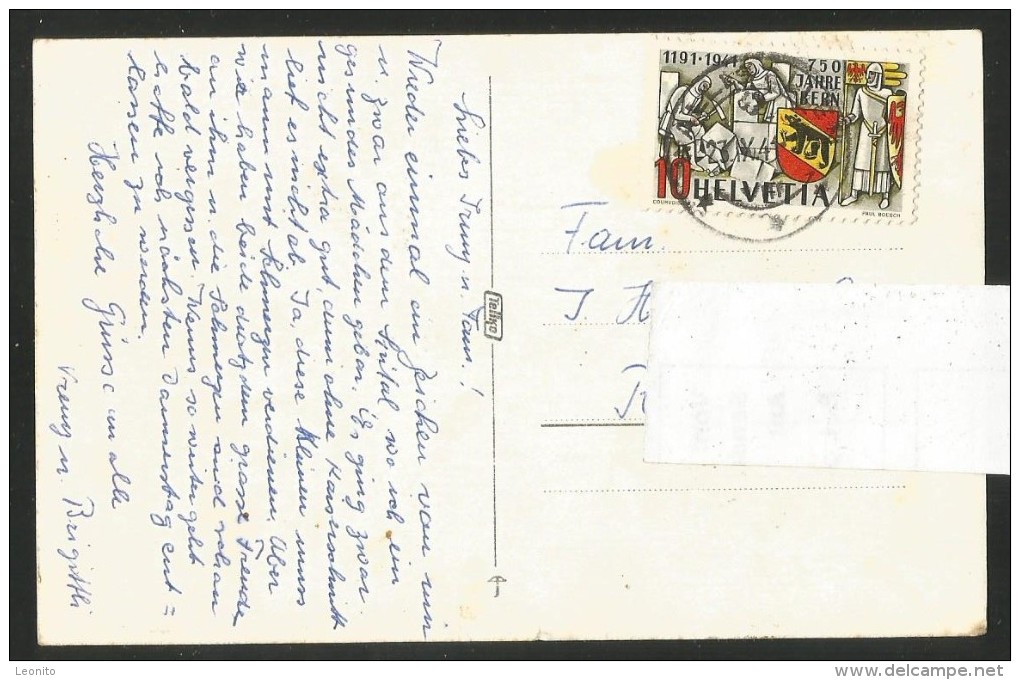 Liebes Trudy u. Fam.!
Wieder einmal ein Zeichen von mir
u. zwar aus dem Spital, wo ich ein
gesundes Mädchen gebar. Es ging zwar
nicht extra gut, denn ohne Kaiserschnitt
lief es nicht ab. Ja, diese Kleinen muss
man mit Schmerzen verdienen. Aber
wir haben beide trotzdem grosse Freude
an ihm u. die Schmerzen sind schon
bald vergessen. Wenns so weiter geht
hoffe ich nächsten Donnerstag ent=
lassen zu werden.
Herzliche Grüsse an alle
Vreny u. Brigittli
Tellko
1191·1941
750
JAHRE
BERN
10 HELVETIA
COURVOISIER
PAUL BOESCH
Fam.
J. H
R
Leonito
delcampe.net